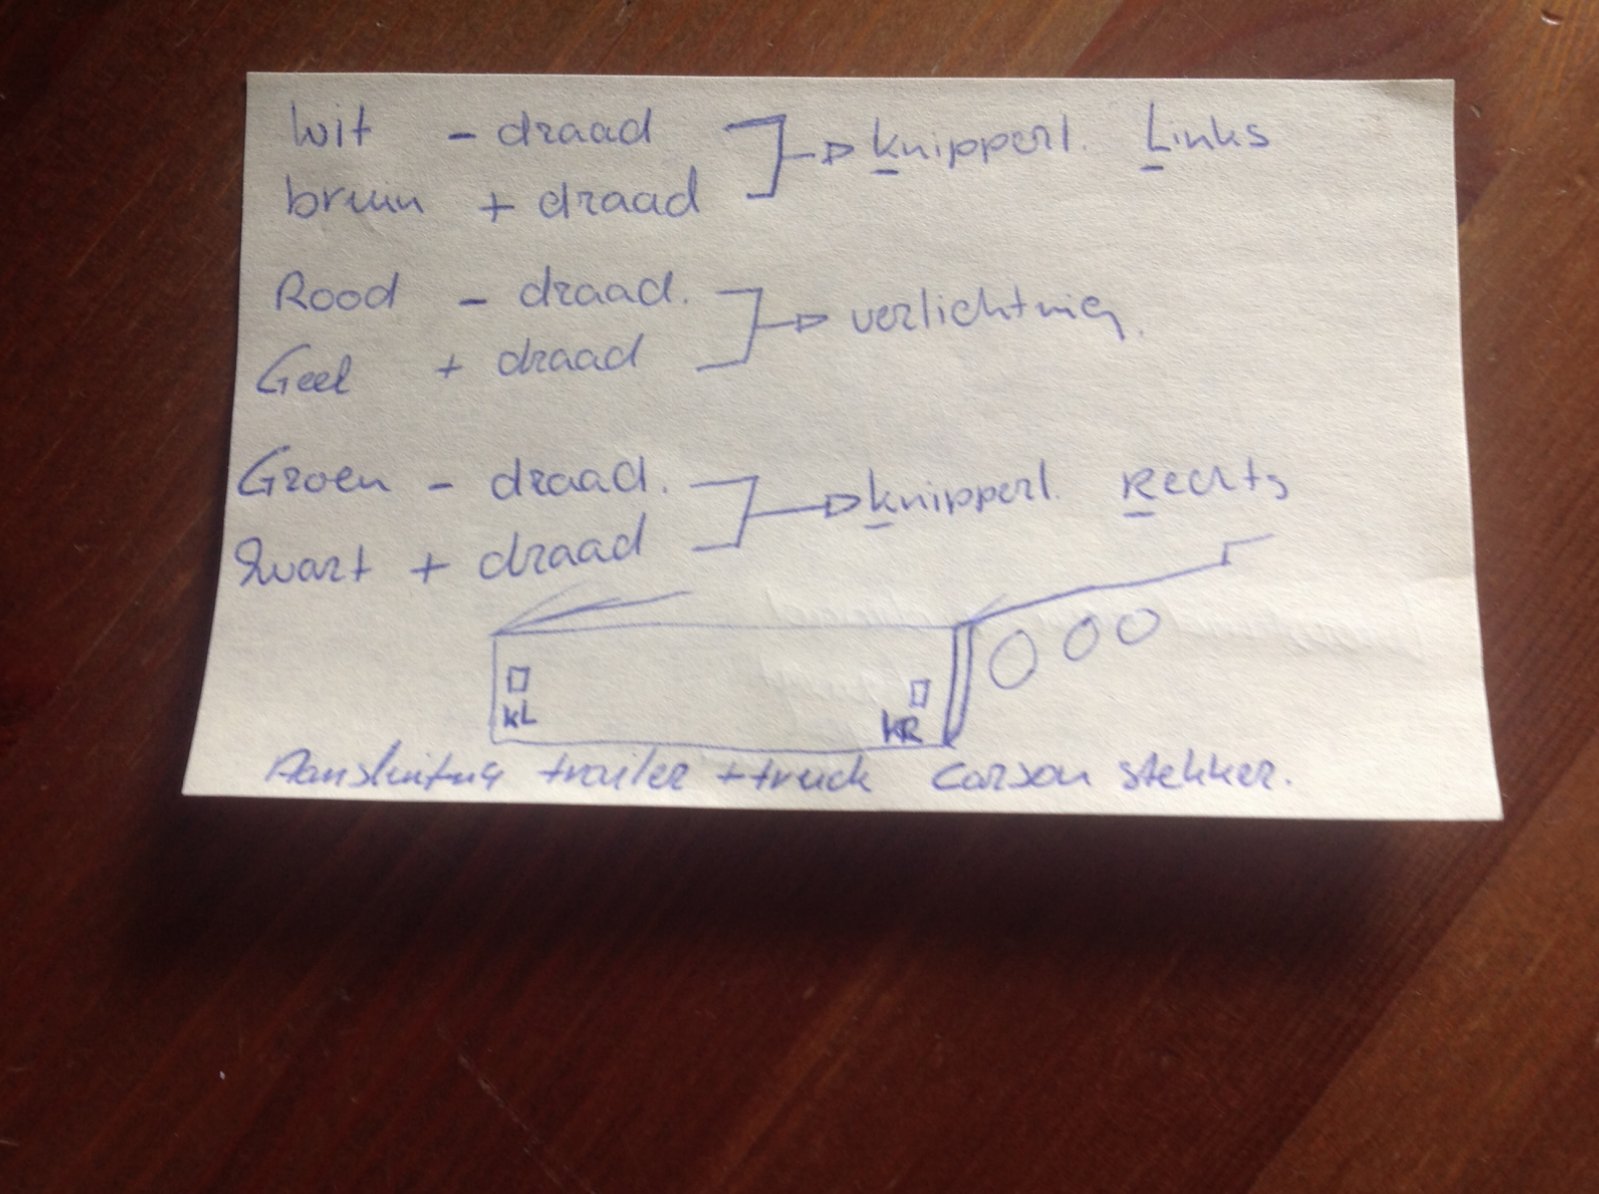 Wit - draad → knipperl. Links
bruin + draad
Rood - draad. → verlichting.
Geel + draad
Groen - draad. → knipperl. Rechts
Zwart + draad
KL KR
Aansluiting trailer + truck Carson stekker.